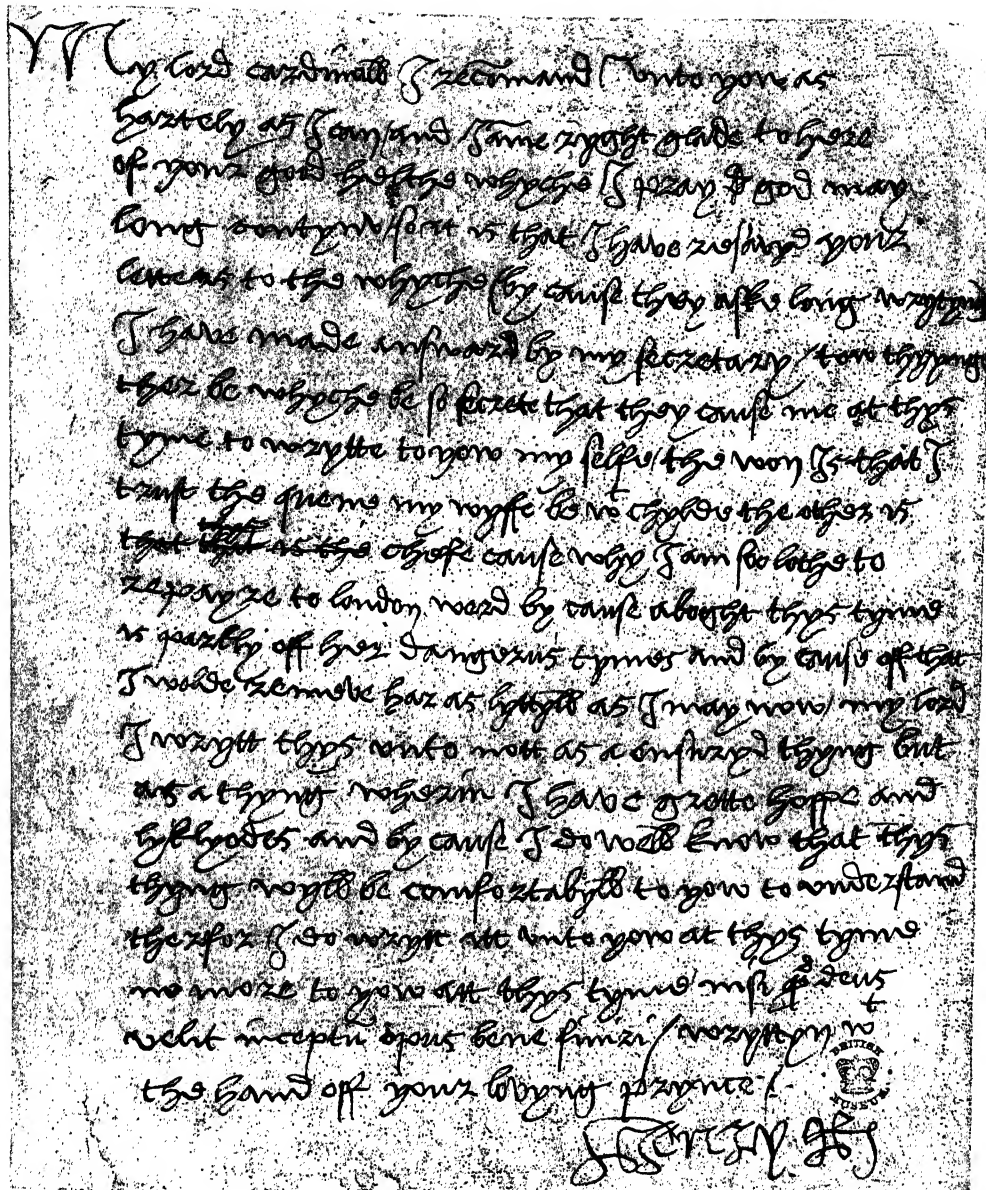 My lord cardinall I recomand me unto yow as
hartely as I can and I ame ryght glade to here
of your good helthe whyche I pray to god may
long contynu / so it is that I have resayvyd your
letters to the whyche by cause they aske long wrytyng
I have made answard by my secretary / tow thynges
ther be whyche be so secrete that they cause me at thys
tyme to wrytte to yow my selfe / the won is that I
trust the quene my wyffe be wt chylde the other is
that thys is the chefe cause why I am soo lothe to
repayre to london ward by cause aboght thys tyme
is partly off her dangerus tymes and by cause off that
I wolde remeve har as lyttyll as I may now / my lord
I wrytt thys unto nott as a ensuryd thyng but
as a thyng wherin I have grette hoppe and
lyklyodes and by cause I do well know that thys
thyng wyll be comfortabyll to yow to understand
therfor I do wrytt itt unto yow at thys tyme
no more to yow att thys tyme nisi qd deus
velit inceptu opus bene finiri / wryttyn wt
the hand off your lovyng prynce
BRITISH MUSEUM
Henry R